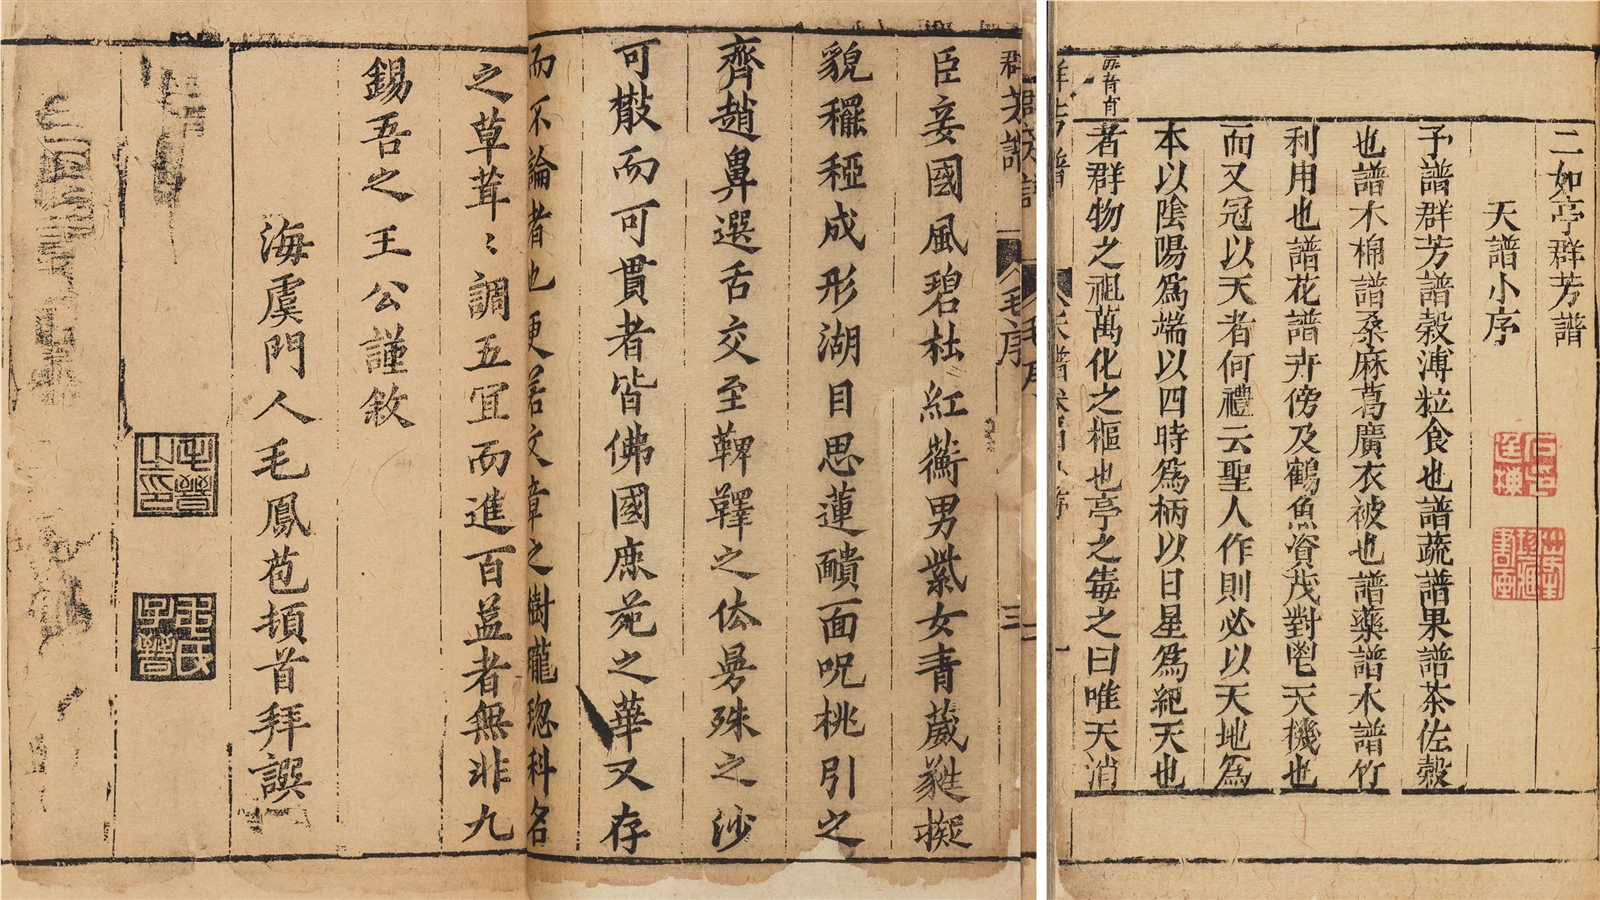 二如亭群芳譜
天譜小序
予譜群芳譜榖溥粒食也譜蔬譜果譜茶佐榖
也譜木棉譜桑麻葛廣衣被也譜藥譜木譜竹
利用也譜花譜卉傍及鶴魚資茂對鬯天機也
而又冠以天者何禮云聖人作則必以天地爲
本以陰陽爲端以四時爲柄以日星爲紀天也
者群物之祖萬化之樞也亭之毒之曰唯天消
群芳譜 毛序 三
臣妾國風碧杜紅蘅男紫女青葳蕤擬
貌穲稏成形湖目思蓮靧面呪桃引之
齊趙鼻選舌交至鞞鞸之殊之沙
可而可貫者皆佛國苑之華又存
而不論者也更若文章之樹瓏璁科名
之草茸〻調五冝而進百益者無非九
錫吾之王公謹敘
海虞門人毛鳳苞頓首拜譔
毛晉之印
毛氏子晉